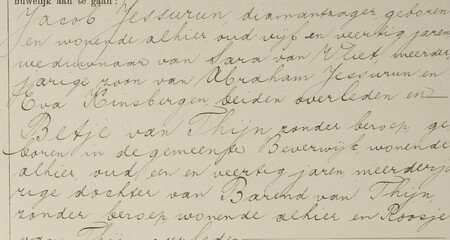 huwelijk aan te gaan:
Jacob Jessurun, diamantzager, geboren
en wonende alhier oud vijf en veertig jaren
weduwnaar van Sara van Vliet, meerder
jarige zoon van Abraham Jessurun en
Eva Kinsbergen beiden overleden en
Betje van Thijn zonder beroep, ge
boren in de gemeente Beverwijk, wonende
alhier, oud een en veertig jaren meerderja
rige dochter van Barend van Thijn,
zonder beroep, wonende alhier en Roosje
van Thijn